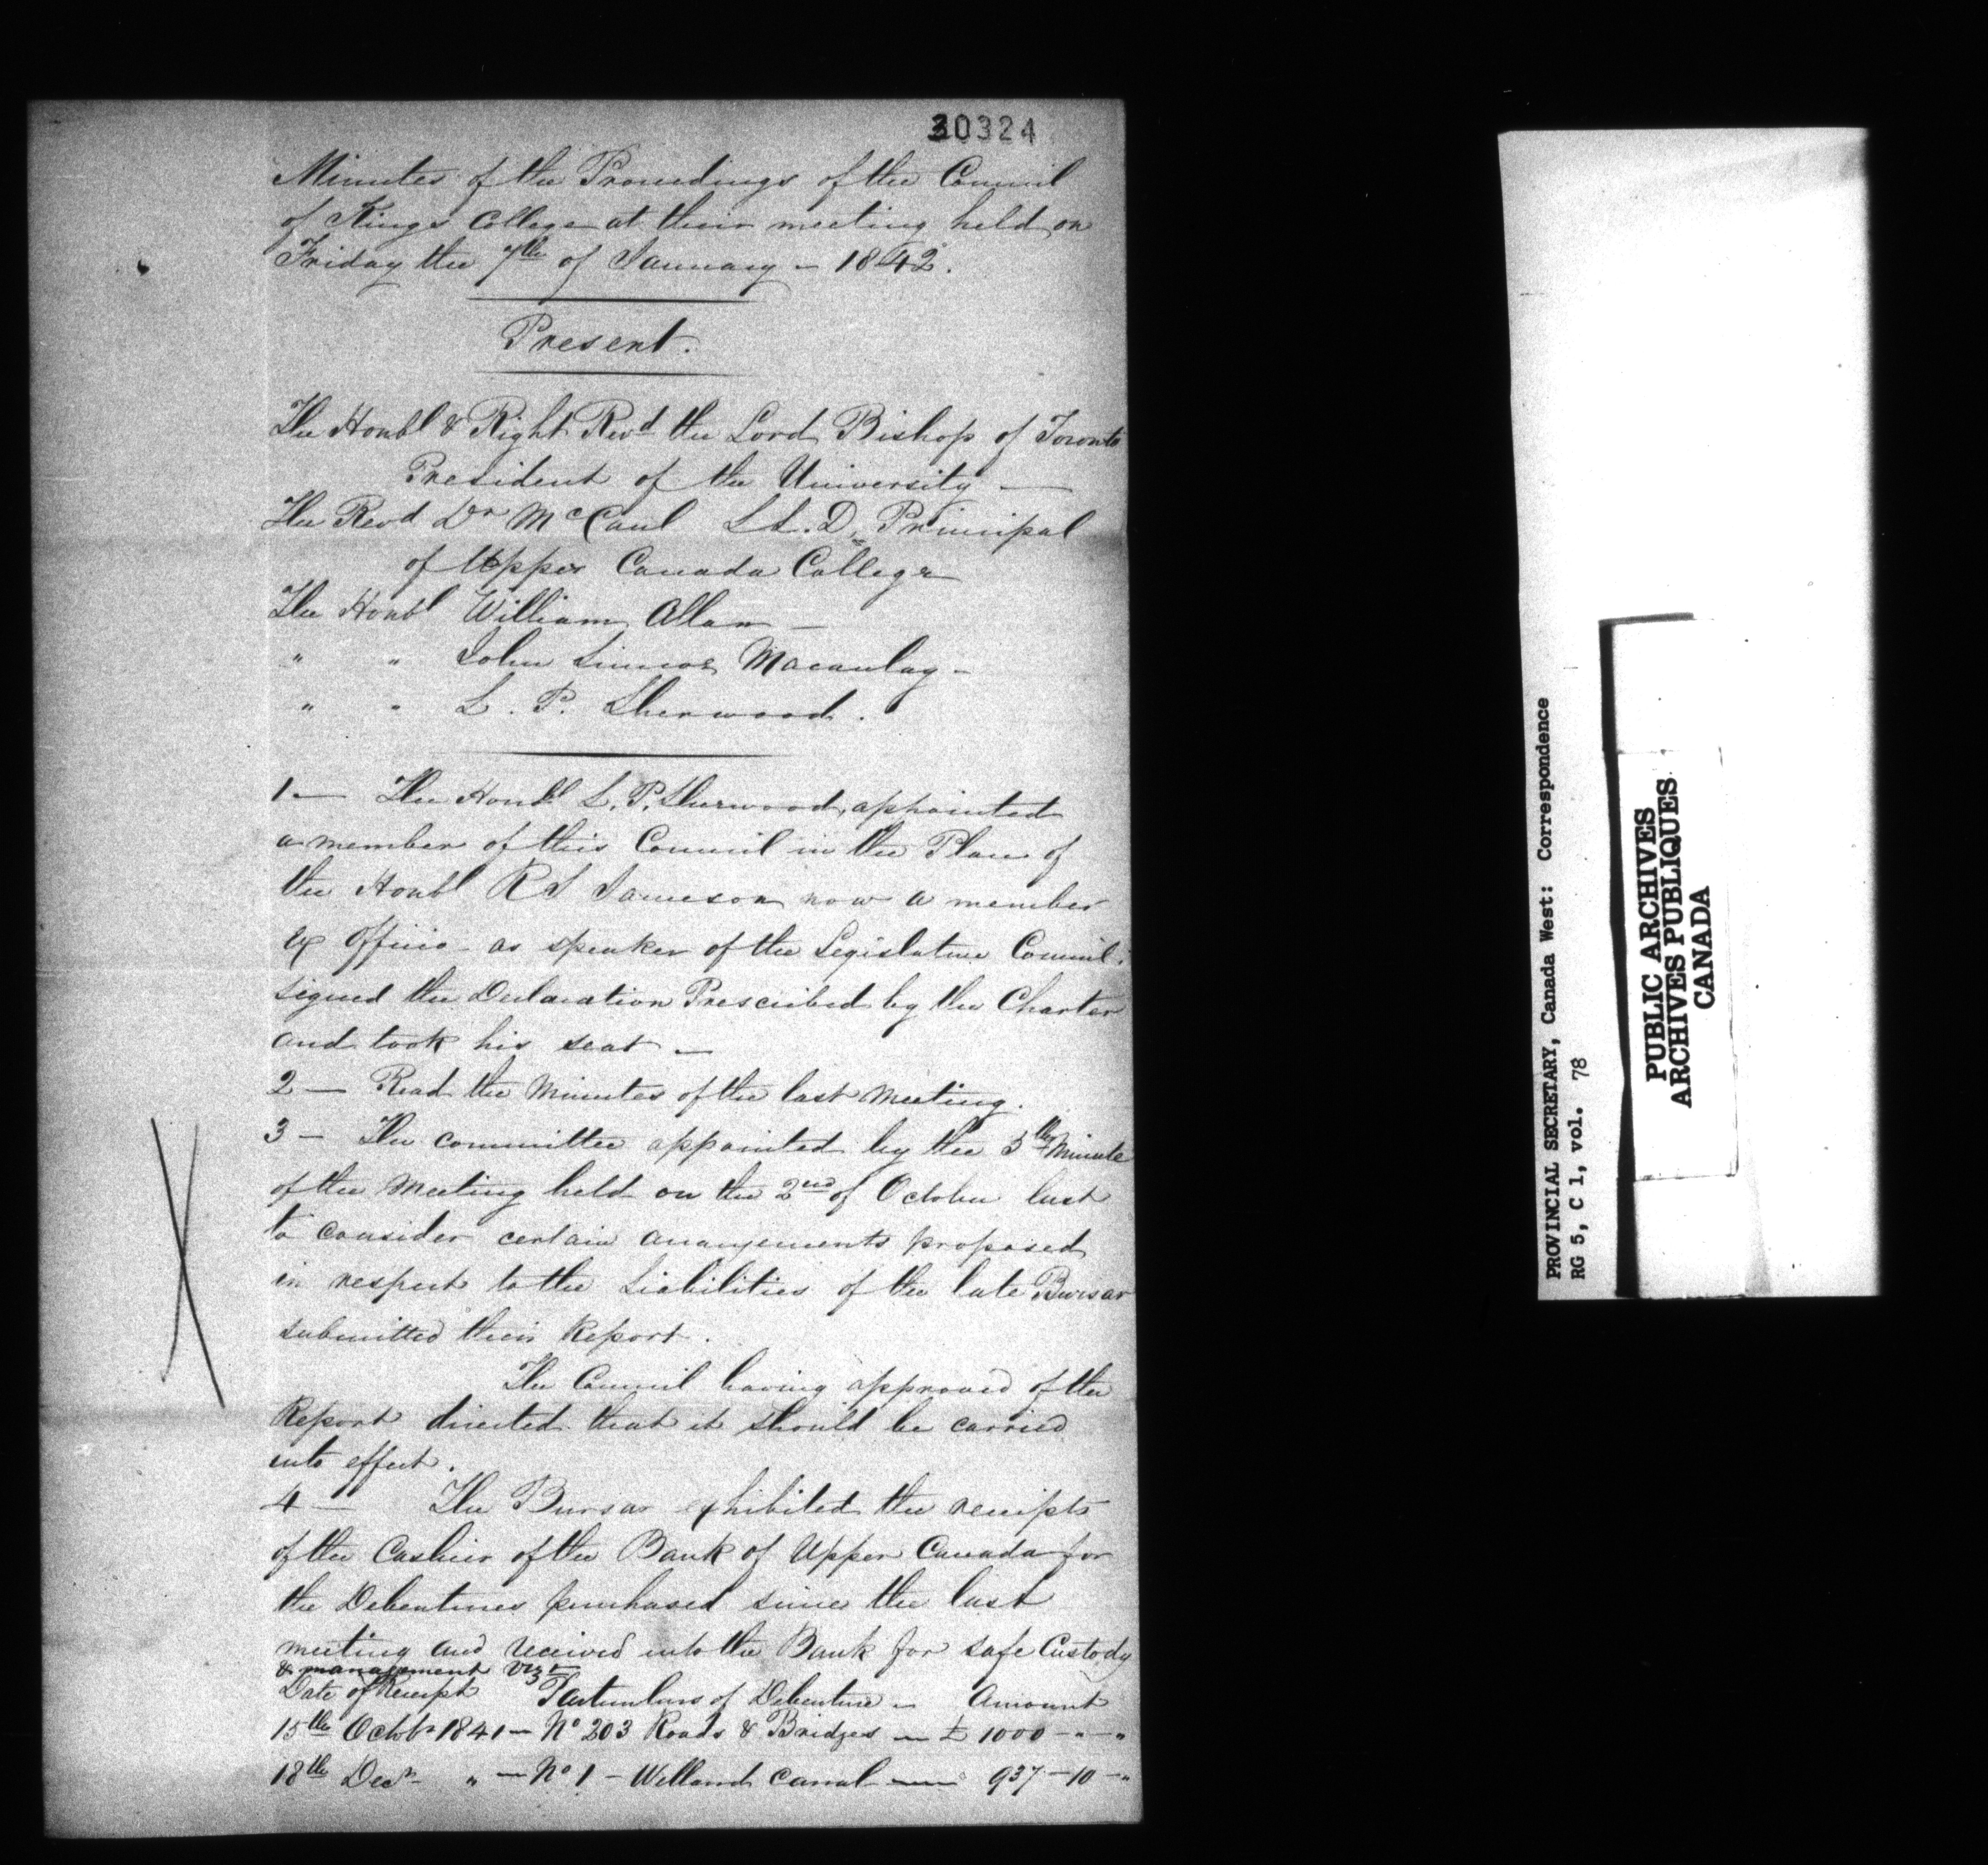 30324
Minutes of the Proceedings of the Council
of Kings College at their meeting held on
Friday the 7th of January – 1842.
Present.
The Honbl & Right Revd the Lord Bishop of Toronto
President of the University —
The Revd Dr McCaul LL.D, Principal
of Upper Canada College
The Honbl William Allan –
" " John Simcoe Macaulay –
" " L. P. Sherwood.
1 — The Honbl L. P. Sherwood, appointed
a member of this Council in the Place of
the Honbl R S Jameson now a member
Ex Officio as speaker of the Legislative Council.
signed the Declaration Prescribed by the Charter
and took his seat —
2 — Read the Minutes of the last Meeting.
3 – The committee appointed by the 5th Minute
of the Meeting held on the 2nd of October last
to consider certain arrangements proposed
in respect to the Liabilities of the late Bursar
submitted their Report.
The Council having approved of the
Report directed that it should be carried
into effect.
4 — The Bursar exhibited the receipts
of the Cashier of the Bank of Upper Canada for
the Debentures purchased since the last
meeting and received into the Bank for safe Custody
& management Vizt
Date of Receipt Particulars of Debenture – Amount
15th Octobr 1841 – No 203 Roads & Bridges — £ 1000 – " – "
18th Decr " — No 1 – Welland Canal — 937 – 10 – "
PROVINCIAL SECRETARY, Canada West: Correspondence
RG 5, C 1, vol. 78
PUBLIC ARCHIVES
ARCHIVES PUBLIQUES
CANADA